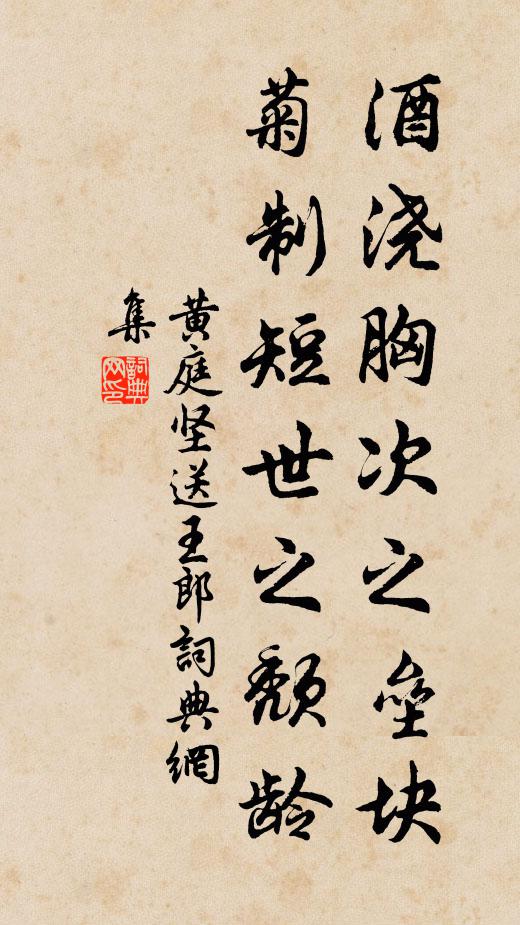 酒浇胸次之垒块
菊制短世之颓龄
黄庭坚送王郎詞典網
集
詞典
网印